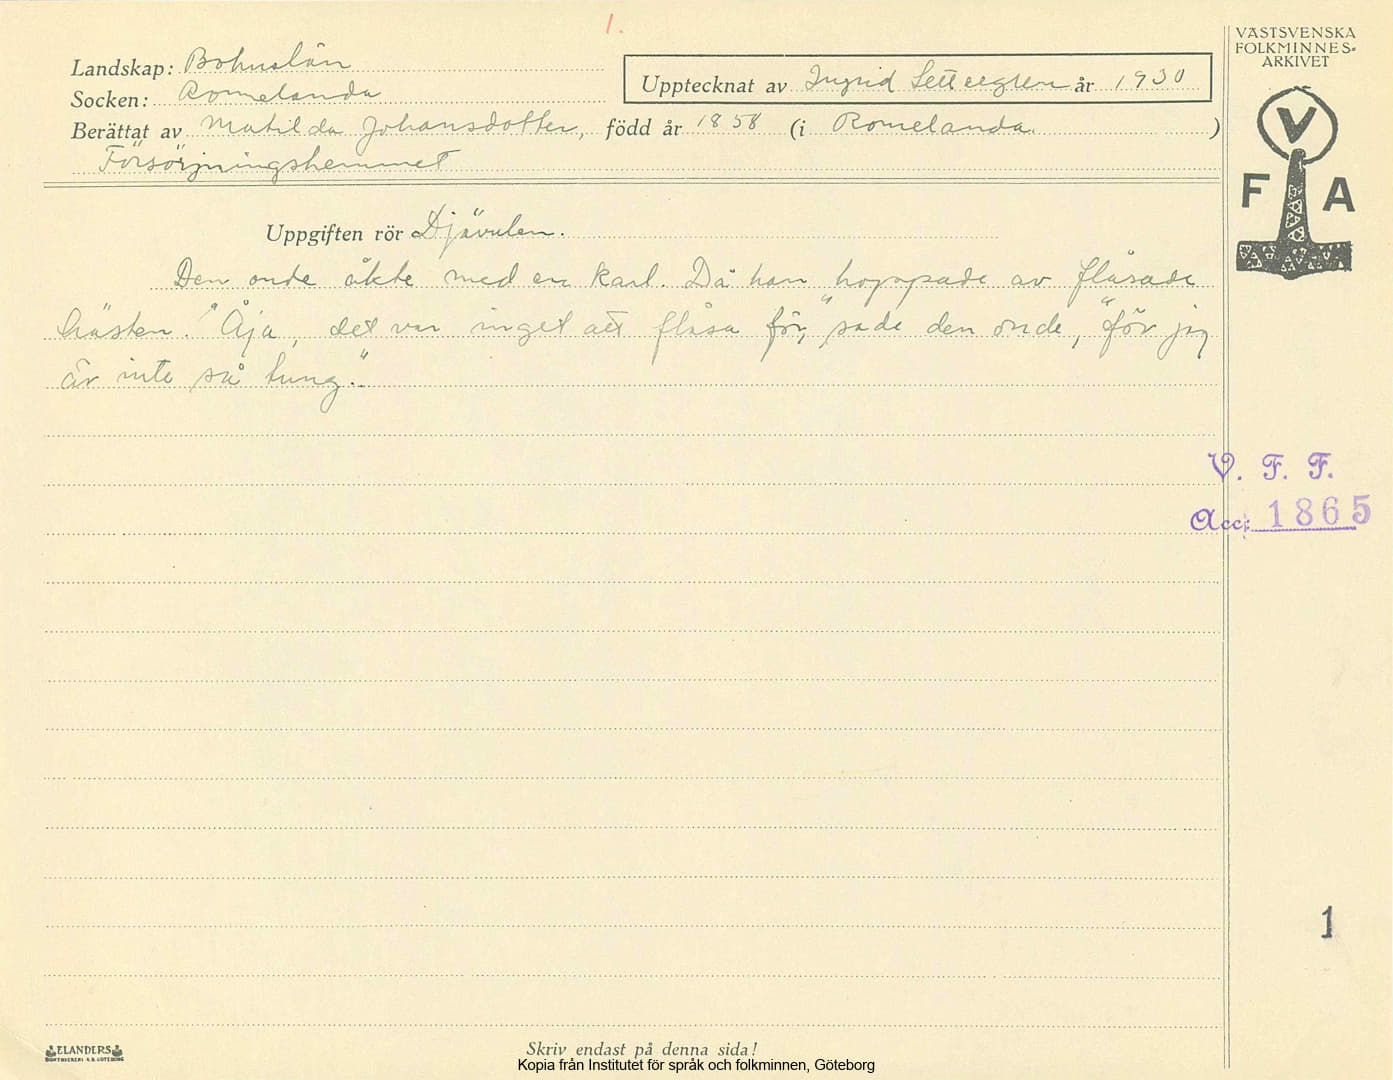 1.
VÄSTSVENSKA
FOLKMINNES-
ARKIVET
Landskap: Bohuslän
Upptecknat av Ingrid Settergren år 1930
Socken: Romelanda
Berättat av Matilda Johansdotter, född år 1858 (i Romelanda.)
Försörjningshemmet
V
F A
Uppgiften rör Djävulen.
Den onde åkte med en karl. Då han hoppade av flåsade
hästen. "Åja, det var inget att flåsa för," sade den onde, "för jag
är inte så tung."
V. F. F.
Acc: 1865
1
ELANDERS
BOKTRYCKERI A.B. GÖTEBORG
Skriv endast på denna sida!
Kopia från Institutet för språk och folkminnen, Göteborg